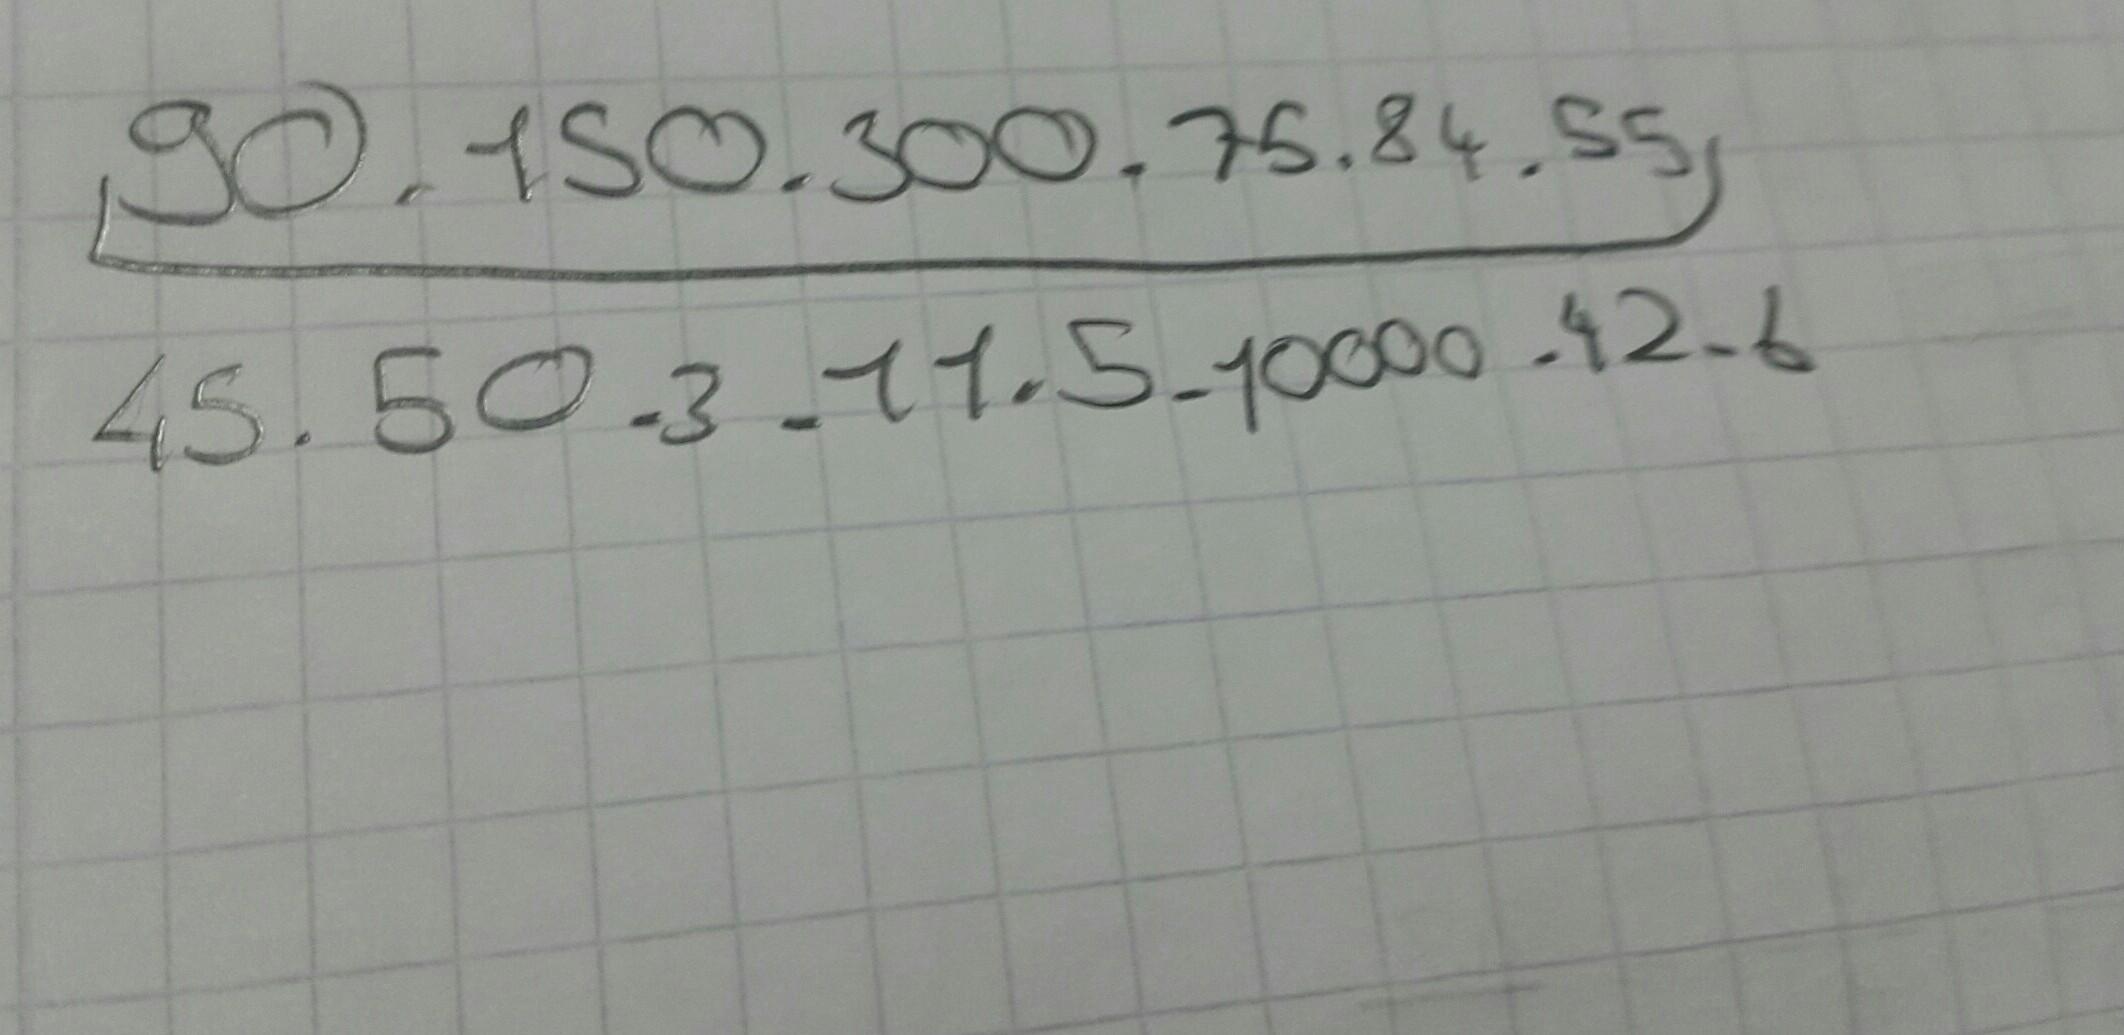 90.150.300.75.84.55
45.50.3.11.5.10000.42.6